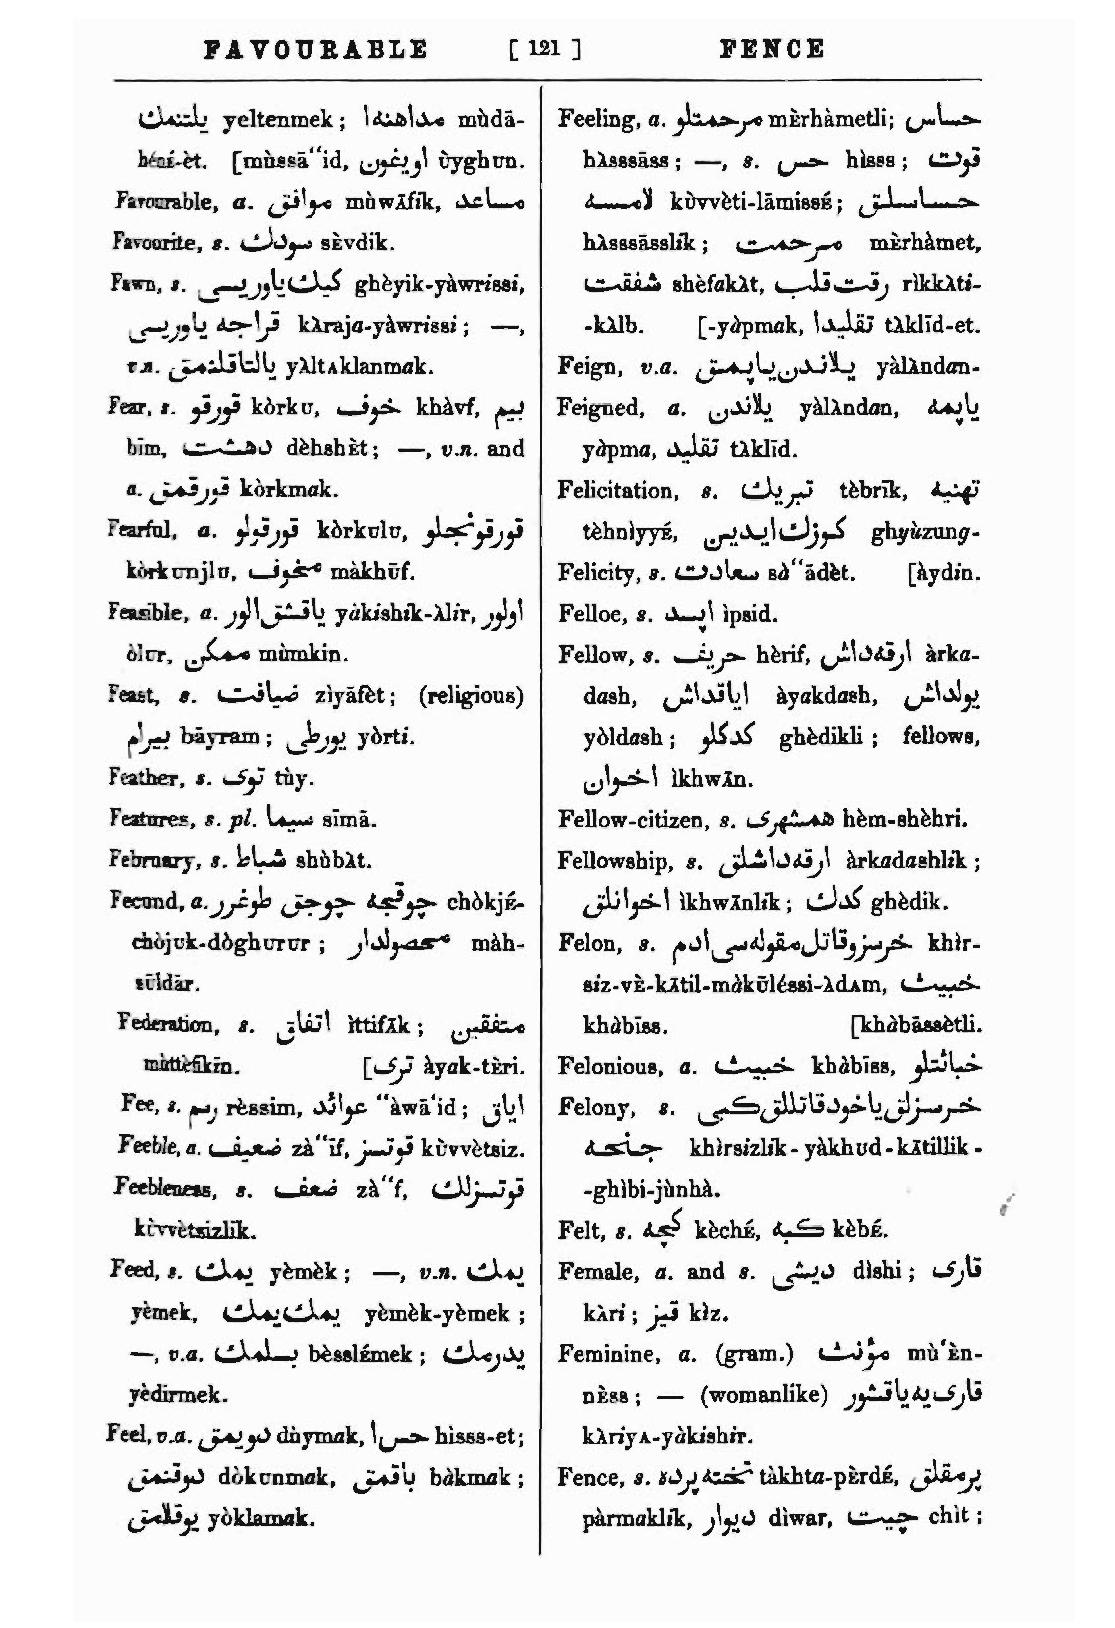 FAVOURABLE [ 121 ] FENCE
يلتنمك yeltenmek; مداهنه‌ا mùdā-
héné-èt. [mùssā‘‘id, اويغون ùyghun.
Favourable, a. موافق mùwāfik, مساعد
Favourite, s. سودك sèvdik.
Fawn, s. كيك ياوريسى ghèyik-yàwrissi,
قراجه ياوريسى kàraja-yàwrissi; —,
v.n. يالتاقلنمق yàltaklanmak.
Fear, s. قورقو kòrku, خوف khàvf, بيم
bīm, دهشت dèhshèt; —, v.n. and
a. قورقمق kòrkmak.
Fearful, a. قورقولو kòrkulu, قورقونجلو
kòrkunjlu, مخوف màkhūf.
Feasible, a. ياقشق الور yàkishik-àlir, اولور
òlur, ممكن mùmkin.
Feast, s. ضيافت zìyāfèt; (religious)
بيرام bāyram; يورطى yòrti.
Feather, s. توى tùy.
Features, s. pl. سيما sīmā.
February, s. شباط shùbàt.
Fecund, a. چوقجه چوجق طوغرر chòkjé-
chòjuk-dòghurur; محصولدار màh-
sūldār.
Federation, s. اتفاق ìttifāk; متفقين
mùttèfikīn. [ترى àyak-tèri.
Fee, s. رسم rèssim, عوائد ‘‘àwā’id; اياق
Feeble, a. ضعيف zà‘‘īf, قوتسز kùvvètsiz.
Feebleness, s. ضعف zà‘‘f, قوتسزلك
kùvvètsizlīk.
Feed, s. يمك yèmèk; —, v.n. يمك
yèmek, يمك يمك yèmèk-yèmek;
—, v.a. بسلمك bèsslémek; يدرمك
yèdirmek.
Feel, v.a. دويمق dùymak, حس‌ا hìsss-et;
دوقنمق dòkunmak, باقمق bàkmak;
يوقلامق yòklamak.
Feeling, a. مرحمتلو mèrhàmetli; حساس
hàsssāss; —, s. حس hìsss; قوت
لامسه kùvvèti-lāmissé; حساسلق
hàsssāsslik; مرحمت mèrhàmet,
شفقت shèfakàt, رقت قلب rìkkàti-
-kàlb. [-yàpmak, تقليدا tàklīd-et.
Feign, v.a. يلاندن ياپمق yàlàndan-
Feigned, a. يلاندن yàlàndan, ياپمه
yàpma, تقليد tàklīd.
Felicitation, s. تبريك tèbrīk, تهنيه
tèhnìyyé, كوزك ايدين ghyùzung-
Felicity, s. سعادت sà‘‘ādèt. [àydin.
Felloe, s. اپسد ìpsid.
Fellow, s. حريف hèrif, ارقه‌داش àrka-
dash, اياقداش àyakdash, يولداش
yòldash; كدكلو ghèdikli; fellows,
اخوان ìkhwān.
Fellow-citizen, s. همشهرى hèm-shèhri.
Fellowship, s. ارقه‌داشلق àrkadashlik;
اخوانلق ìkhwānlik; كدك ghèdik.
Felon, s. خرسز وقاتل مقوله‌سى ادم khìr-
siz-vè-kātil-màkūléssi-àdam, خبيث
khàbīss. [khàbāssètli.
Felonious, a. خبيث khàbīss, خباثتلو
Felony, s. خرسزلق ياخود قاتللق كبى
جنحه khìrsizlik-yàkhud-kātillik-
-ghìbi-jùnhà.
Felt, s. كچه kèché, كبه kèbé.
Female, a. and s. ديشى dìshi; قارى
kàri; قيز kìz.
Feminine, a. (gram.) مؤنث mù’èn-
nèss; — (womanlike) قارى‌يه ياقشور
kàriya-yàkishir.
Fence, s. تخته پرده tàkhta-pèrdé, پرمقلق
pàrmaklik, ديوار dìwar, چيت chìt;